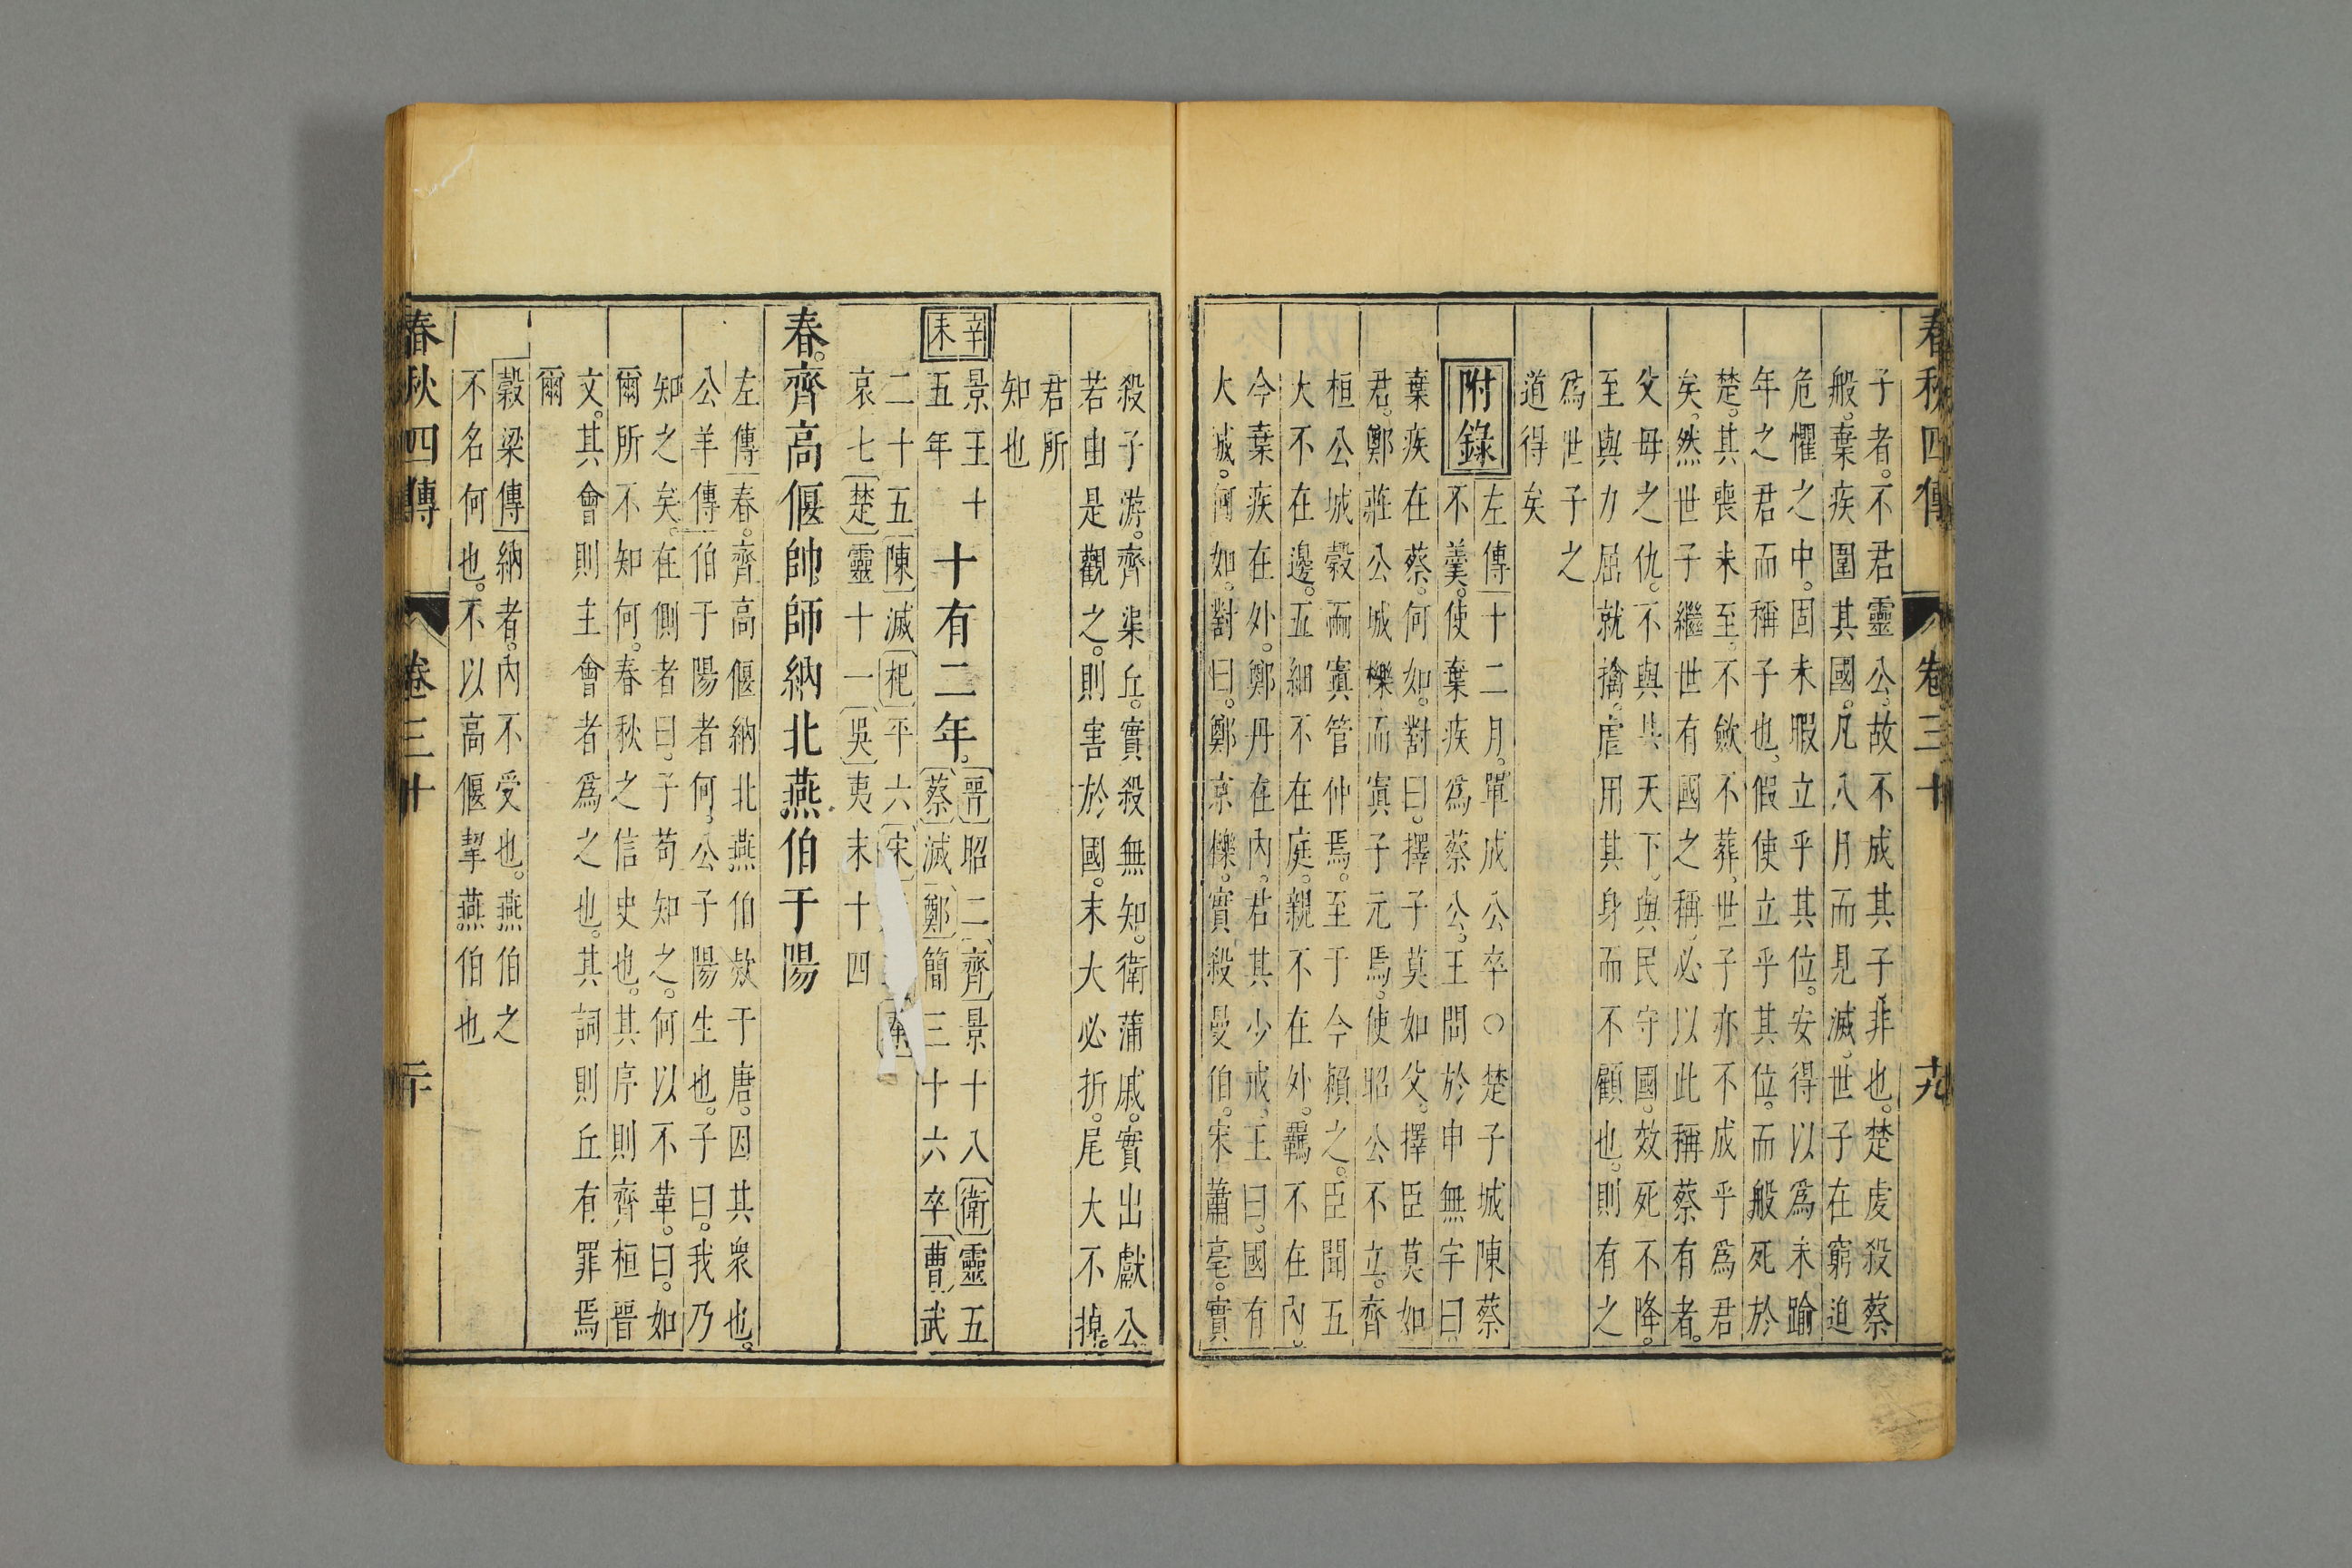 春秋四傳 卷三十 十九
子者。不君靈公。故不成其子。非也。楚虔殺蔡
般。棄疾圍其國。凡八月而見滅。世子在窮迫
危懼之中。固未暇立乎其位。安得以爲未踰
年之君而稱子也。假使立乎其位。而般死於
楚。其喪未至。不斂不葬。世子亦不成乎爲君
矣。然世子繼世有國之稱。必以此稱蔡有者。
父母之仇。不與共天下。與民守國。效死不降。
至與力屈就擒。虐用其身而不顧也。則有之
爲世子之
道得矣
附錄
左傳十二月。單成公卒○楚子城陳蔡
不羹。使棄疾爲蔡公。王問於申無宇曰
棄疾在蔡。何如。對曰。擇子莫如父。擇臣莫如
君。鄭莊公城櫟而寘子元焉。使昭公不立。齊
桓公城穀而寘管仲焉。至于今賴之。臣聞五
大不在邊。五細不在庭。親不在外。羈不在內。
今棄疾在外。鄭丹在內。君其少戒。王曰。國有
大城。何如。對曰。鄭京櫟。實殺曼伯。宋蕭亳。實
殺子游。齊渠丘。實殺無知。衛蒲戚。實出獻公
若由是觀之。則害於國。末大必折。尾大不掉。
君所
知也
辛未
景王十
五年
十有二年。
晉昭二齊景十八衛靈五
蔡滅鄭簡三十六卒曹武
二十五陳滅杞平六宋
哀七楚靈十一吳夷末十四
春。齊高偃帥師納北燕伯于陽
左傳春。齊高偃納北燕伯欵于唐。因其衆也。
公羊傳伯于陽者何。公子陽生也。子曰。我乃
知之矣。在側者曰。子苟知之。何以不革。曰。如
爾所不知何。春秋之信史也。其序則齊桓晉
文。其會則主會者爲之也。其詞則丘有罪焉
爾
穀梁傳納者。內不受也。燕伯之
不名何也。不以高偃挈燕伯也
春秋四傳 卷三十 二十